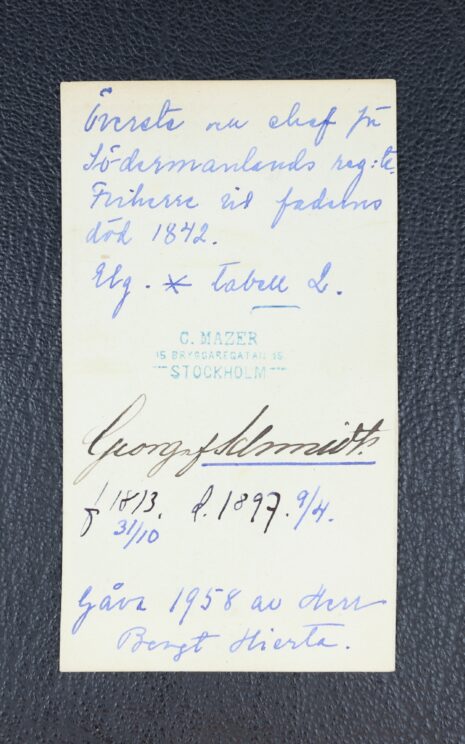 Överste och chef för
Södermanlands reg:te.
Friherre vid faderns
död 1842.
Elg. * tabell 2.
C. MAZER
15 BRYGGAREGATAN 15
STOCKHOLM
Georg af Schmidt.
f 1813. d. 1897. 9/4.
31/10
Gåva 1958 av Herr
Bengt Hierta.